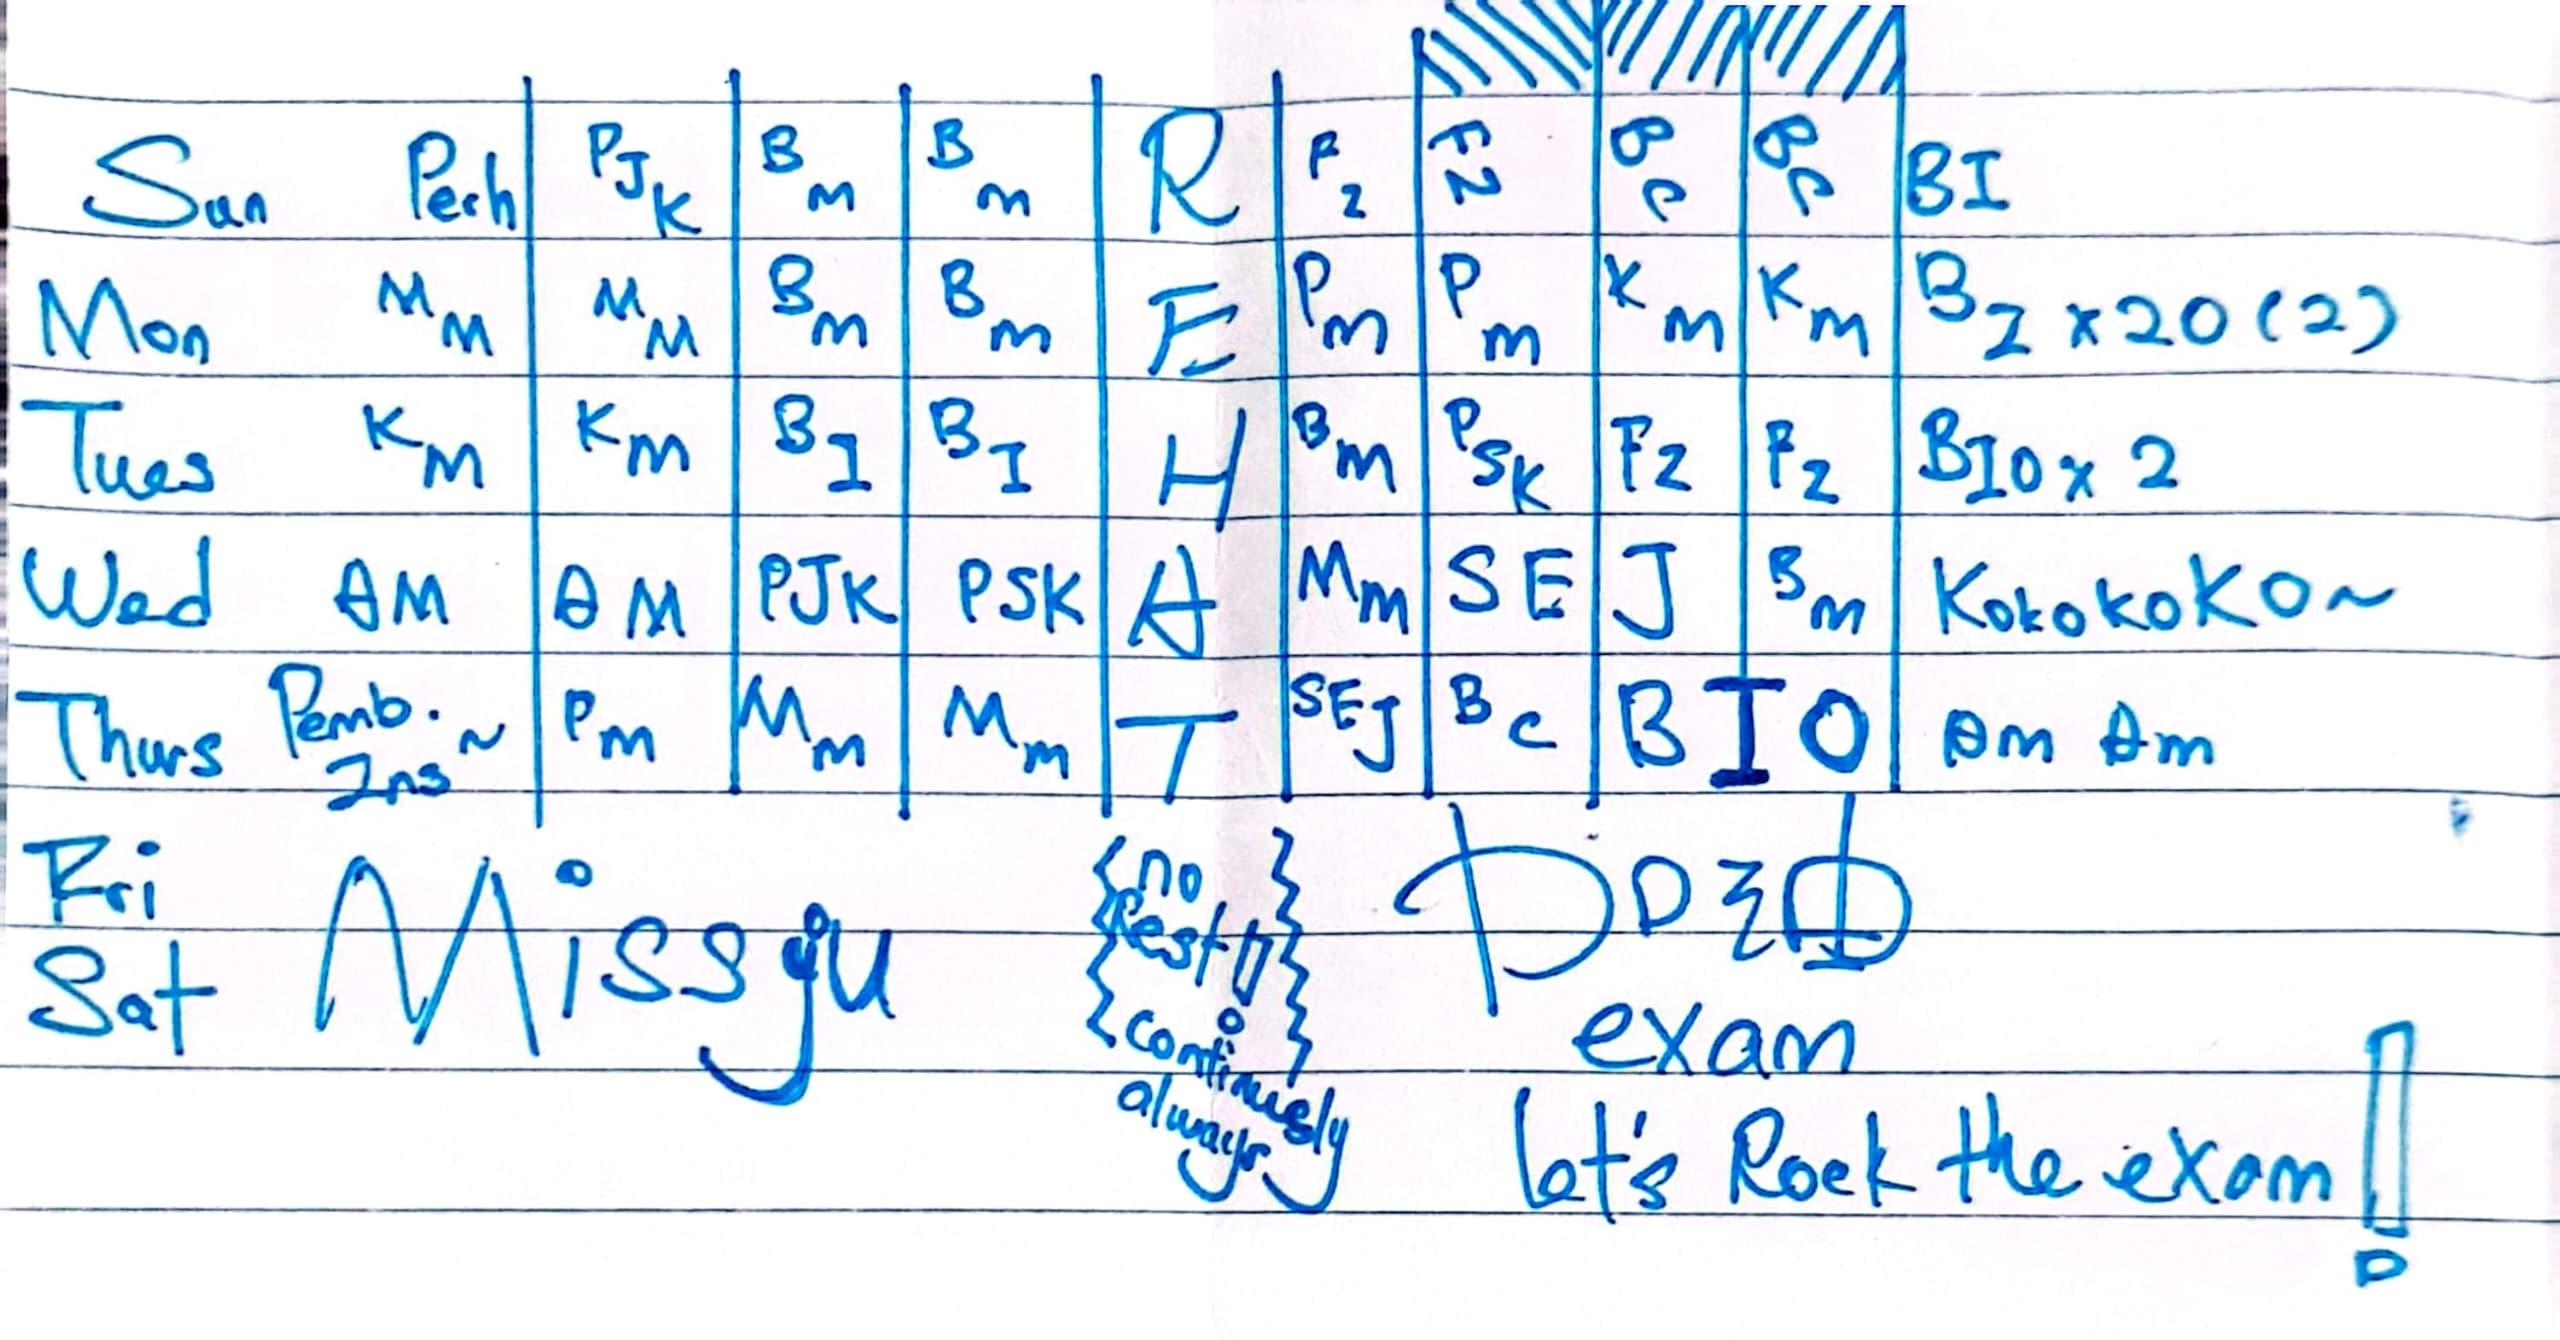 Sun Perh PJK BM BM R FZ FZ BC BC BI
Mon MM MM BM BM E PM PM KM KM BI x 20 (2)
Tues KM KM BI BI H BM PSK FZ FZ BIO x 2
Wed AM AM PJK PSK A MM SE J BM KOKOKOKO~
Thurs Pemb. Ins ~ PM MM MM T SEJ BC BIO AM AM
Fri
Sat Miss yu
{no
Rest!!
continusly
always}
exam
let's Rock the exam!